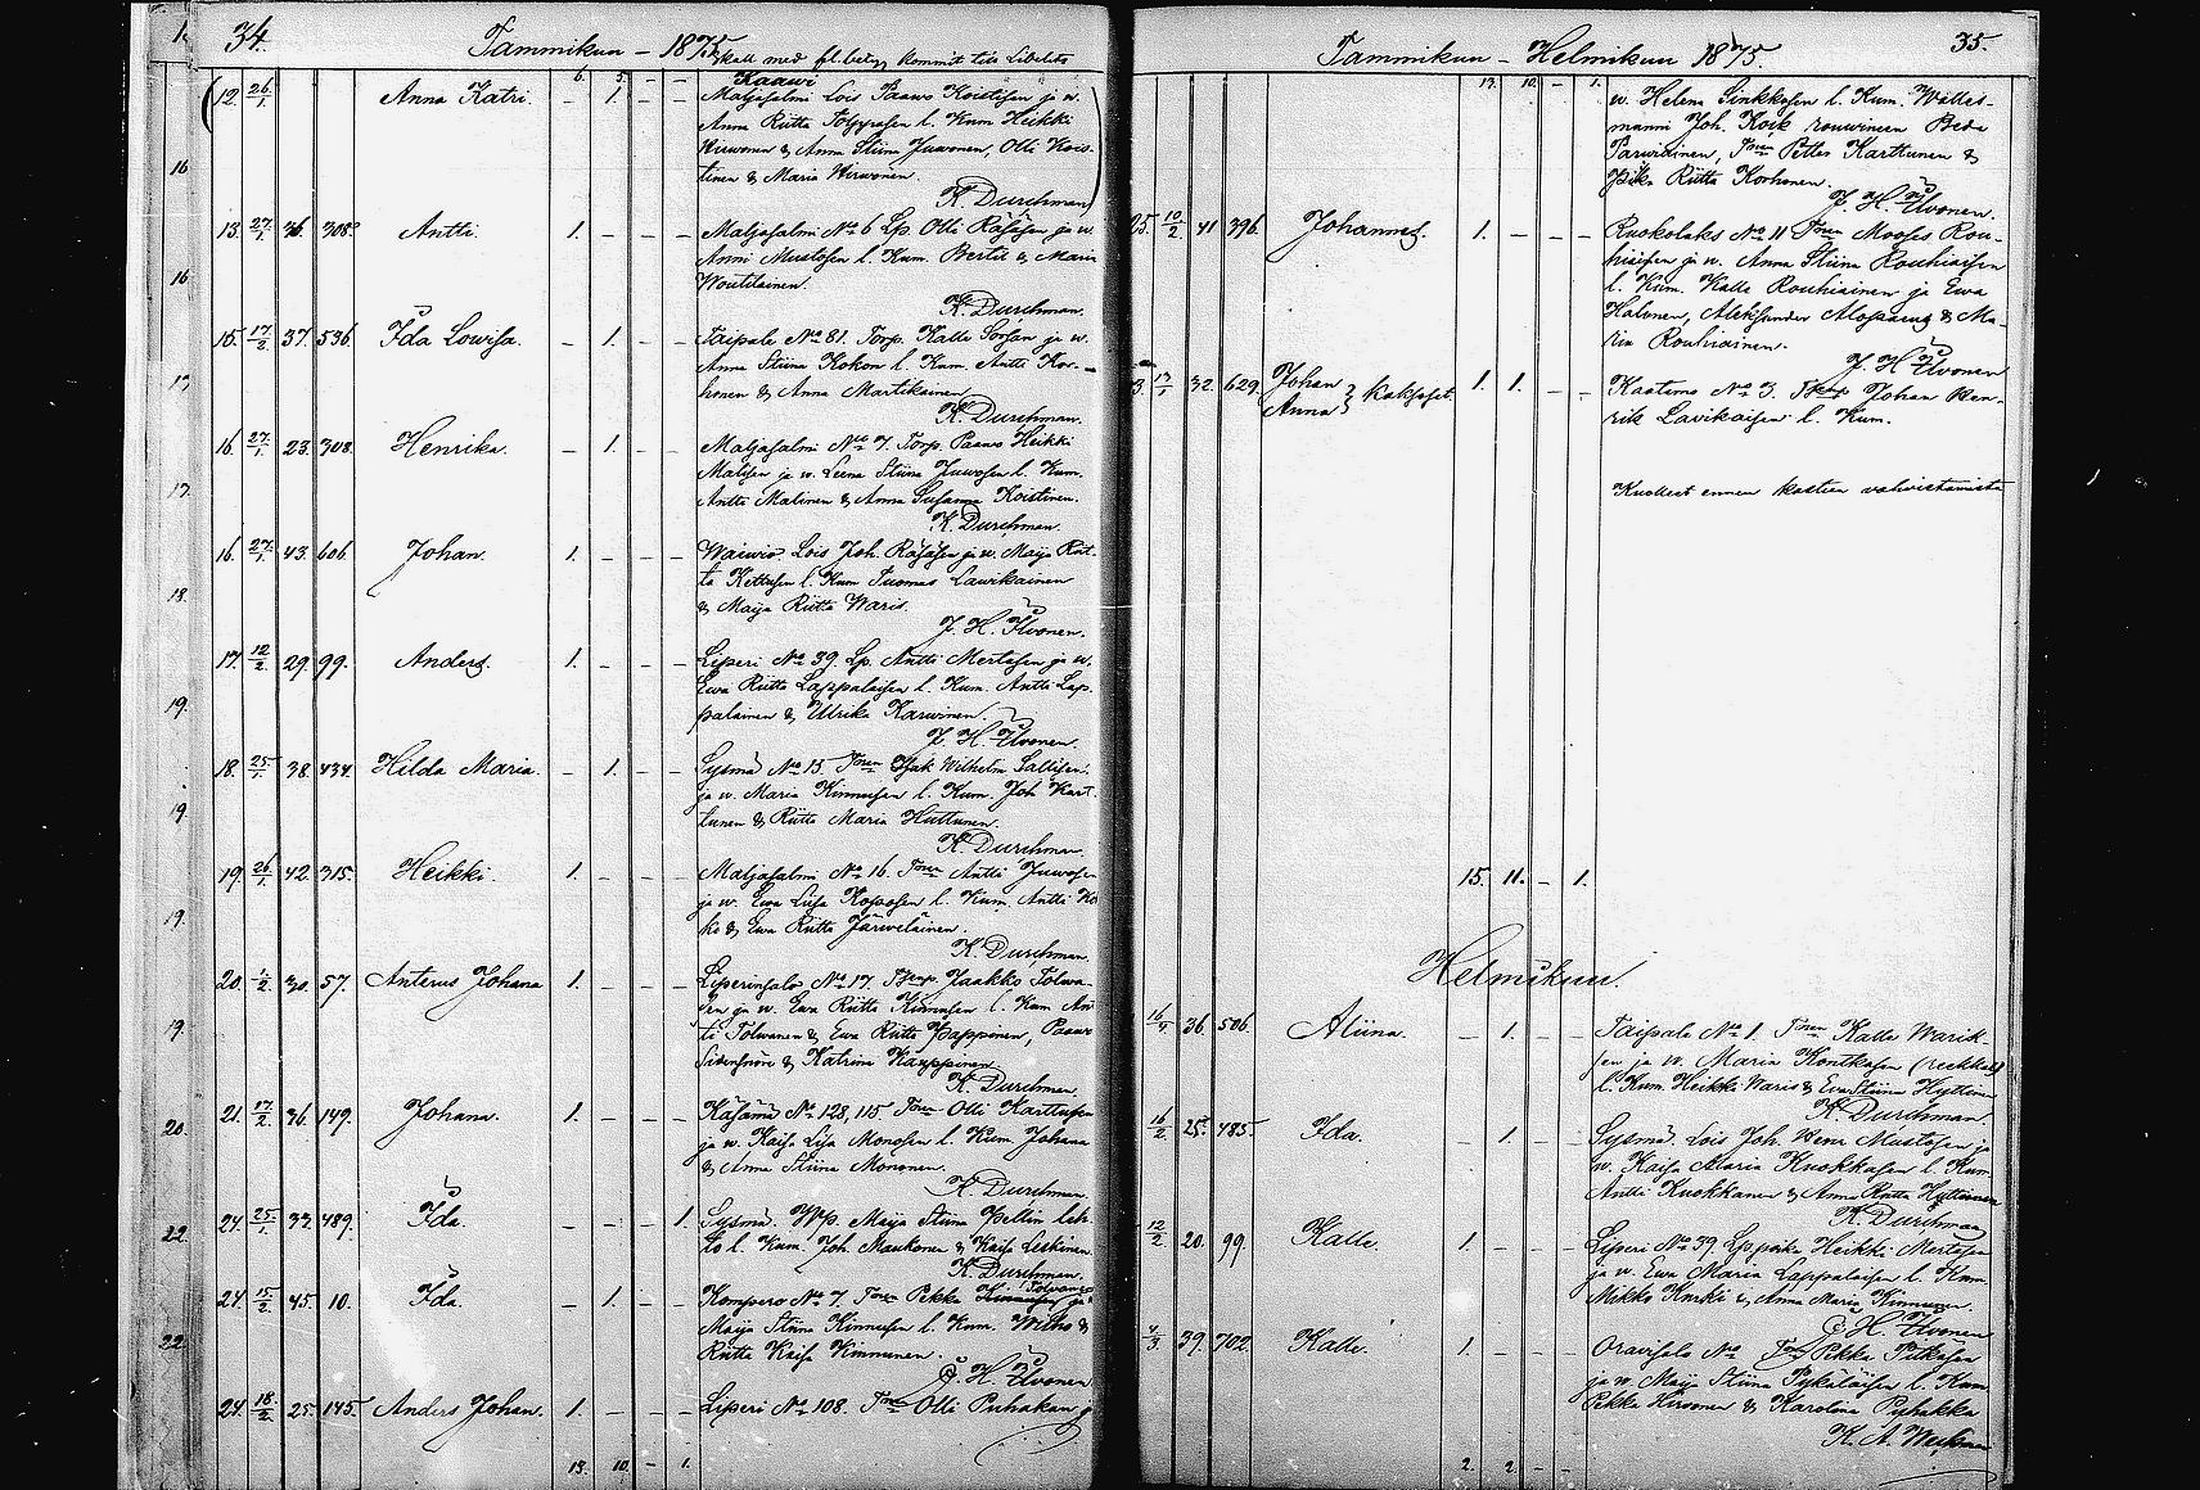 34.
Tammikun – 1875.
Skall med fl. betyg kommit till Libelits
6. 5. – –
Kaawi
(12. 26/1. Anna Katri. – 1. – – Maljasalmi Lois Paawo Koistisen ja w.
Anna Riitta Tolppasen l. Kum Heikki
Hirwonen & Anna Stiina Juwonen, Olli Kois-
tinen & Maria Hirwonen.
K. Durchman)
13. 27/1. 36. 308. Antti. 1. – – – Maljasalmi No 6 Lp. Olli Räsäsen ja w.
Anni Mustosen l. Kum. Bertil & Maria
Woutilainen.
K. Durchman.
15. 17/2. 37. 536. Ida Lowisa. – 1. – – Taipale No 81. Torp. Kalle Sorsan ja w.
Anna Stiina Kokon l. Kum. Antti Kor-
honen & Anna Martikainen
K. Durchman.
16. 27/1. 23. 308. Henrika. – 1. – – Maljasalmi No 7. Torp. Paawo Heikki
Malisen ja w. Leena Stiina Juwosen l. Kum.
Antti Malinen & Anna Susanna Koistinen.
K. Durchman.
16. 27/1. 43. 606. Johan. 1. – – – Waiwio. Lois Joh. Räsäsen ja w. Maija Riit-
ta Kettusen l. Kum Tuomas Lawikainen
& Maija Riitta Waris.
J. H. Ilvonen.
17. 12/2. 29. 99. Anders. 1. – – – Liperi No 39. Lp. Antti Mertasen ja w.
Ewa Riitta Lappalaisen l. Kum. Antti Lap-
palainen & Ulrika Karwinen.
J. H. Ilvonen.
18. 25/1. 38. 434. Hilda Maria. – 1. – – Sysmä No 15. Tnen Isak Wilhelm Sallisen
ja w. Maria Kinnusen l. Kum. Joh Kart-
tunen & Riitta Maria Huttunen.
K. Durchman.
19. 26/1. 42. 315. Heikki. 1. – – – Maljasalmi No 16. Tnen Antti Juwosen
ja w. Ewa Liisa Kososen l. Kum. Antti Ko-
ko & Ewa Riitta Järweläinen.
K. Durchman.
20. 1/2. 30. 57. Anterus Johana 1. – – – Liperinsalo No 17. Jaakko Tolwa-
sen ja w. Ewa Riitta Kinnusen l. Kum An-
ti Tolwanen & Ewa Riitta Pappinen, Paawo
& Katrina Kauppinen
K. Durchman.
21. 17/2. 36. 149. Johana. 1. – – – Käsämä No 128, 115. Tnen Olli Karttusen
ja w. Kaisa Lisa Monosen l. Kum. Johana
& Anna Stiina Mononen.
K. Durchman.
24. 25/1. 33. 489. Ida. – – – 1. Sysmä. Wp. Maija Stiina Pellin leh-
to l. Kum. Joh. Maukonen & Kaisa Leskinen.
K. Durchman.
24. 15/2. 45. 10. Ida. – 1. – – Kompero No 7. Tnen Pekka Kinnusen Tolwanen ja
Maija Stiina Kinnusen l. Kum. Wilho &
Riitta Kaisa Kinnunen.
J. H. Ilvonen
24. 18/2. 25. 145. Anders Johan. 1. – – – Liperi No 108. Tnen Olli Puhakan ja
13. 10. – 1.
35.
Tammikun – Helmikun 1875.
13. 10. – 1.
w. Helena Sinkkosen l. Kum. Walles-
manni Joh. Kock rouwineen Beda
Parwiainen, Tnen Petter Karttunen &
piika Riitta Korhonen.
J. H. Ilvonen.
25. 10/2. 41 396. Johannes. 1. – – – Ruokolaks No 11 Tnen Mooses Rou-
hiaisen ja w. Anna Stiina Rouhiaisen
l. Kum. Kalle Rouhiainen ja Ewa
Halonen, Aleksander Alopaeus & Ma-
ria Rouhiainen.
J. H Ilvonen
3. 13/1 32. 629. Johan
Anna } Kaksoset. 1. 1. – – Kaatamo No 3. Johan Hen-
rik Lavikaisen l. Kum.
Kuolleet ennen kasteen vahvistamista
15. 11. – 1.
Helmikuu.
16/4 36. 506. Aliina. – 1. – – Taipale No 1. Tnen Kalle Warik-
sen ja w. Maria Kontkasen
l. Kum. Heikki Waris & Eva Stiina Hyttinen
K. Durchman.
16/2. 25. 485. Ida. – 1. – – Sysmä. Lois Joh. Henr Mustosen ja
w. Kaisa Maria Kuokkasen l. Kum.
Antti Kuokkanen & Anna Riitta Hyttinen
K. Durchman
12/2. 20. 99. Kalle. 1. – – – Liperi No 39. Lp poika Heikki Mertasen
ja w. Ewa Maria Lappalaisen l. Kum.
Mikko Kurki & Anna Maria Kinnunen.
J. H. Ilvonen
4/3. 39. 702. Kalle. 1. – – – Oravisalo No Tnen Pekka Pitkäsen
ja w. Maija Stiina Pykäläisen l. Kum
Pekka Hirvonen & Karolina Puhakka
K. A. Weckman
2. 2. – –